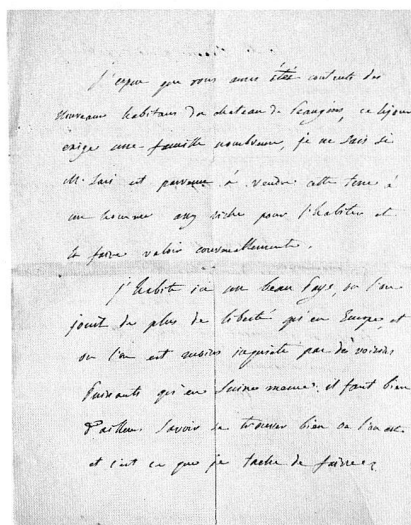 J'espere que vous aurez été contents des
nouveaux habitans du chateau de Prangins, ce bijou
exige une famille nombreuse, je ne sais si
M. Sais est parvenu à vendre cette terre à
un homme assez riche pour l'habiter et
la faire valoir convenablement.
J'habite ici un beau pays, où l'on
jouit de plus de liberté qu'en Europe, et
où l'on est moins inquieté par des voisins
puissants qu'en Suisse meme. il faut bien
d'ailleurs savoir se trouver bien où l'on est
et c'est ce que je tache de faire